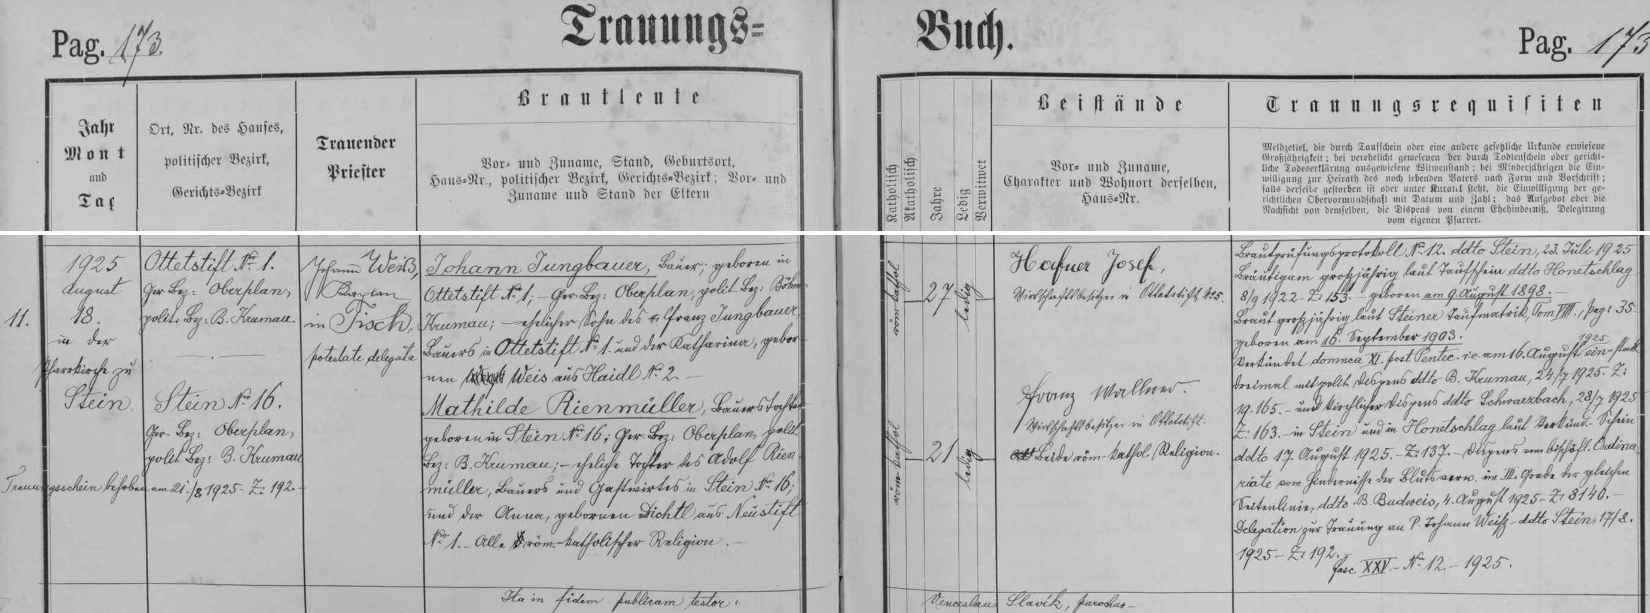 Pag. 173.
Trauungs=
Buch.
Pag. 173
Jahr
Mont
und
Tag
Ort, Nr. des Hauses,
politischer Bezirk,
Gerichts=Bezirk
Trauender
Priester
Brautleute
Vor= und Zuname, Stand, Geburtsort,
Haus=Nr., politischer Bezirk, Gerichts=Bezirk; Vor= und
Zuname und Stand der Eltern
Katholisch
Akatholisch
Jahre
Ledig
Verwitwet
Beistände
Vor= und Zuname,
Charakter und Wohnort derselben,
Haus=Nr.
Trauungsrequisiten
Meldzettel, die durch Taufschein oder eine andere gesetzliche Urkunde erwiesene
Großjährigkeit; bei verehelicht gewesenen der durch Todtenschein oder gericht-
liche Todeserklärung ausgewiesene Witwenstand; bei Minderjährigen die Ein-
willigung zur Heirath des noch lebenden Vaters nach Form und Vorschrift;
falls derselbe gestorben ist oder unter Kuratel steht, die Einwilligung der ge-
richtlichen Obervormundschaft mit Datum und Zahl; das Aufgebot oder die
Nachsicht von demselben, die Dispens von einem Ehehinderniß, Delegirung
vom eigenen Pfarrer.
11.
1925
August
18.
in der
Pfarrkirche zu
Stein.
Ottetstift No 1.
Ger. Bez: Oberplan,
polit. Bez: B. Krumau
Stein No 16.
Ger. Bez: Oberplan,
polit. Bez: B. Krumau
Trauungsschein behoben am 21./8 1925 - Z: 192.-
Johann Weiß,
Kaplan
in Tisch,
potestate delegata
Johann Jungbauer, Bauer; geboren in
Ottetstift No 1, - Ger. Bez: Oberplan, polit. Bez: Böhm.
Krumau; - ehelicher Sohn des Franz Jungbauer
Bauers in Ottetstift No 1. und der Katharina, gebor-
nen Weis aus Haidl No 2. -
Mathilde Rienmüller, Bauerstochter
geboren in Stein No 16; Ger. Bez: Oberplan, polit.
Bez: B. Krumau; - eheliche Tochter des Adolf Rien-
müller, Bauers und Gastwirtes in Stein No 16.
und der Anna, gebornen Dichtl aus Neustift
No 1. - Alle röm.-katholischer Religion. -
röm. kathol
27
ledig
röm. kathol
21
ledig
Hafner Josef,
Wirtschaftsbesitzer in Ottetstift
Franz Wallner.
Wirtschaftsbesitzer in Ottetstift.
Beide röm.-kathol. Religion.
Brautprüfungsprotokoll No 12. ddto Stein, 23. Juli 1925
Bräutigam großjährig laut Taufschein ddto Honetschlag
8/9 1922 - Z: 153 - geboren am 9. August 1898. -
Braut großjährig laut Steiner Taufmatrik, Tom VIII., pag: 35
geboren am 16. September 1903.
Verkündet domnca XI. post Pentec. i.e. am 16. August 1925 ein- statt
dreimal mit polit. Dispens ddto B. Krumau, 24/7 1925 - Z:
19.165. - und kirchlicher Dispens ddto Schwarzbach, 28/7 1925
Z: 163. - in Stein und in Honetschlag laut Verkünd. Schein
ddto 17. August 1925. - Z: 137. - Dispens vom bischöfl. Ordina-
riate vom Hindernisse der Blutsverw. im III. Grade der gleichen
Seitenlinie, ddto B. Budweis, 4. August 1925 - Z: 8140. -
Delegation zur Trauung an P. Johann Weiß - ddto Stein, 17/8.
1925 - Z: 192.
fasc. XXV. - No 12. - 1925.
Ita in fidem publicam testor:
Venceslaus Slavík, parochus -